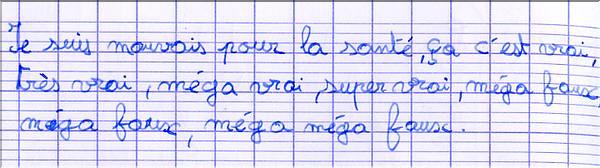 Je suis mauvais pour la santé, ça c'est vrai,
très vrai, méga vrai, super vrai, méga faux,
méga faux, méga méga faux.